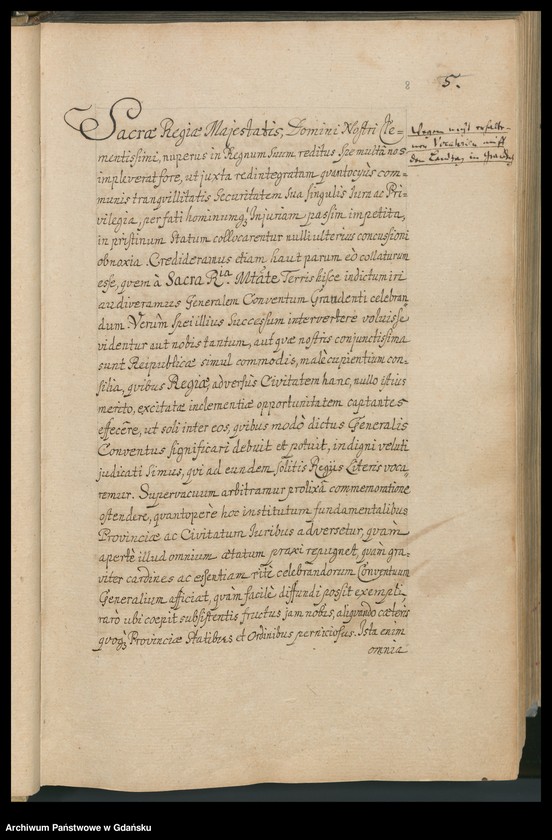 8 5.
Sacræ Regiæ Majestatis, Domini Nostri Cle-
mentissimi, nuperus in Regnum suum reditus spe multâ nos
impleverat fore, ut juxta redintegratam quantocyus com-
munis tranqvillitatis Securitatem sua singulis Iura ac Pri-
vilegia, per fati hominumq; Injuriam passim impetita,
in pristinum statum collocarentur nulli ulterius concussioni
obnoxia. Credideramus etiam haut parum eò collaturum
esse, qvem à Sacra R.ia M.tate Terris hisce indictum iri
audiveramus Generalem Conventum Graudenti celebran
dum. Verùm spei illius Successum intervertere voluisse
videntur aut nobis tantum, aut qvæ nostris conjunctissima
sunt Reipublicæ simul commodis, malè cupientium con-
silia, qvibus Regiæ, adversus Civitatem hanc, nullo istius
merito, excitatæ inclementiæ opportunitatem captantes
effecêre, ut soli inter eos, qvibus modò dictus Generalis
Conventus significari debuit et potuit, indigni veluti
judicati simus, qvi ad eundem solitis Regijs Literis voca
remur. Supervacuum arbitramur prolixâ commemoratione
ostendere, qvantoperè hoc institutum fundamentalibus
Provinciæ ac Civitatum Iuribus adversetur, qvàm
apertè illud omnium ætatum praxi repugnet, qvàm gra-
viter cardines ac essentiam ritè celebrandorum Conventuum
Generalium afficiat, qvam facilè diffundi possit exempli
rarò ubi coepit subsistentis fructus jam nobis, aliqvando cæteris
qvoq; Provinciæ Statibus et Ordinibus perniciosus. Ista enim
omnia
Wegen nicht
den Landtag in
Archiwum Państwowe w Gdańsku